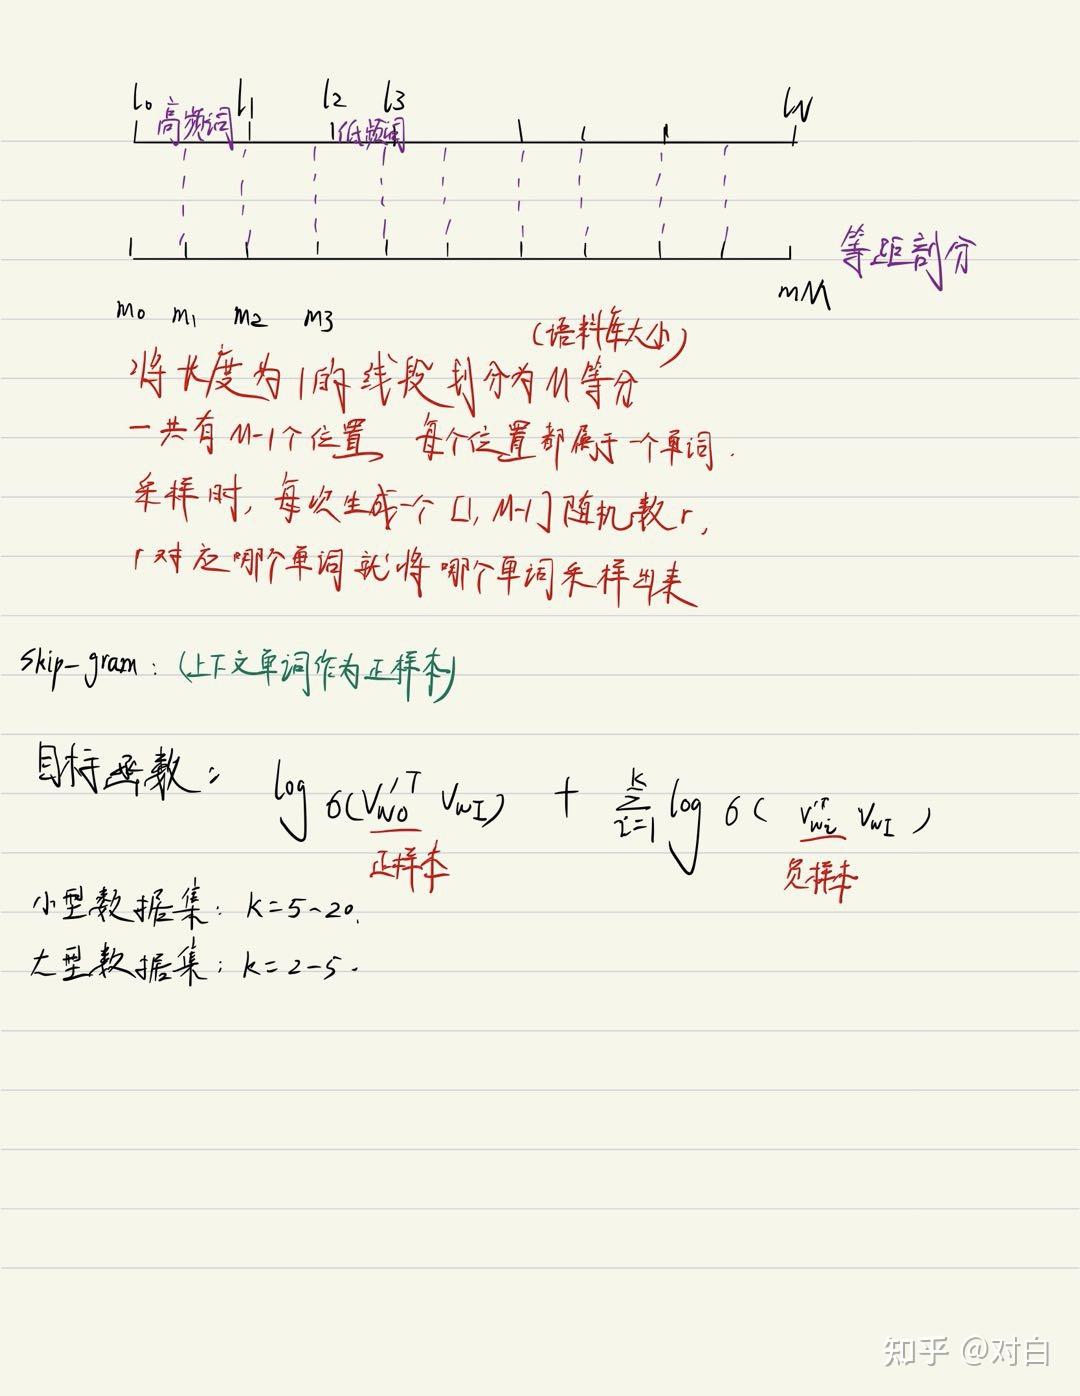 l₀ 高频词 l₁ l₂ 低频词 l₃ lN
等距剖分
m₀ m₁ m₂ m₃ mM
(语料库大小)
将长度为1的线段划分为M等分
一共有M-1个位置 每个位置都属于一个单词.
采样时, 每次生成一个 [1, M-1] 随机数r,
r对应哪个单词就将哪个单词采样出来
skip-gram: (上下文单词作为正样本)
目标函数: log σ(V'ᵀwo VwI) + Σᵏi=1 log σ( V'ᵀwi VwI )
正样本 负样本
小型数据集: k=5~20.
大型数据集: k=2-5.
知乎 @对白